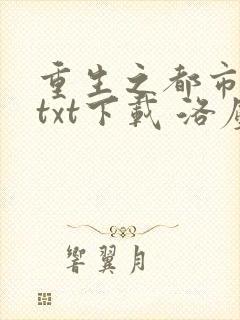 重生之都市
txt下載 洛
響翼月